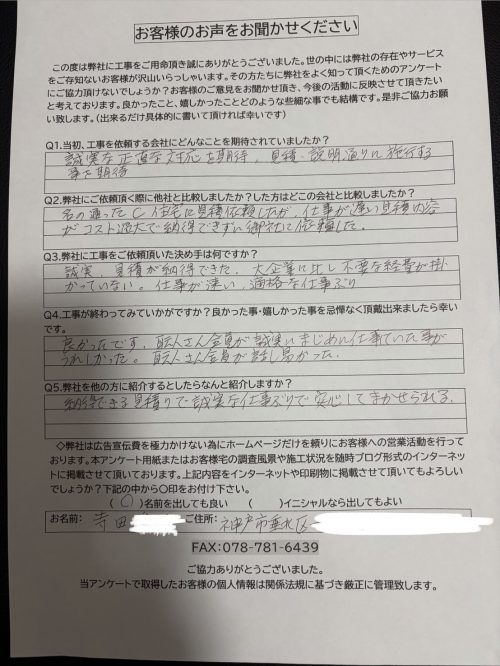 お客様のお声をお聞かせください
この度は弊社に工事をご用命頂き誠にありがとうございました。世の中には弊社の存在やサービス
をご存知ないお客様が沢山いらっしゃいます。その方たちに弊社をよく知って頂くためのアンケート
にご協力頂けないでしょうか？お客様のご意見をお聞かせ頂き、今後の活動に反映させて頂きたい
と考えております。良かったこと、嬉しかったことどのような些細な事でも結構です。是非ご協力お願
い致します。(出来るだけ具体的に書いて頂ければ幸いです)
Q1.当初、工事を依頼する会社にどんなことを期待されていましたか？
誠実な正直な対応を期待、見積・説明通りに施行する
事を期待
Q2.弊社にご依頼頂く際に他社と比較しましたか？した方はどこの会社と比較しましたか？
名の通ったC住宅に見積依頼したが、仕事が遅い見積内容
がコスト過大で納得できずに御社に依頼した。
Q3.弊社に工事をご依頼頂いた決め手は何ですか？
誠実、見積が納得できた。大企業に比し不要な経費が掛
かっていない。仕事が速い、適格な仕事ぶり
Q4.工事が終わってみていかがですか？良かった事・嬉しかった事を忌憚なく頂戴出来ましたら幸い
です。
良かったです。職人さん全員が誠実にまじめに仕事ていた事が
うれしかった。職人さん全員が話し易かった。
Q5.弊社を他の方に紹介するとしたらなんと紹介しますか？
納得できる見積りで誠実な仕事ぶりで安心してまかせられる。
◇弊社は広告宣伝費を極力かけない為にホームページだけを頼りにお客様への営業活動を行って
おります。本アンケート用紙またはお客様宅の調査風景や施工状況を随時ブログ形式のインターネッ
トに掲載させて頂いております。上記内容をインターネットや印刷物に掲載させて頂いてもよろしい
でしょうか？下記の中から〇印をお付け下さい。
(〇)名前を出しても良い ( )イニシャルなら出してもよい
お名前: 寺田 ご住所: 神戸市垂水区
FAX:078-781-6439
ご協力ありがとうございました。
当アンケートで取得したお客様の個人情報は関係法規に基づき厳正に管理致します。